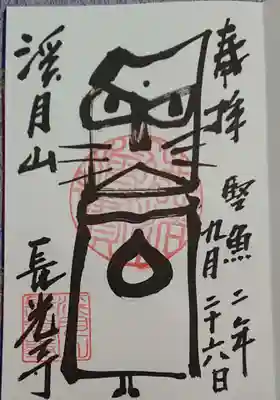 奉拝
二年
九月二十六日
溪月山
長光寺